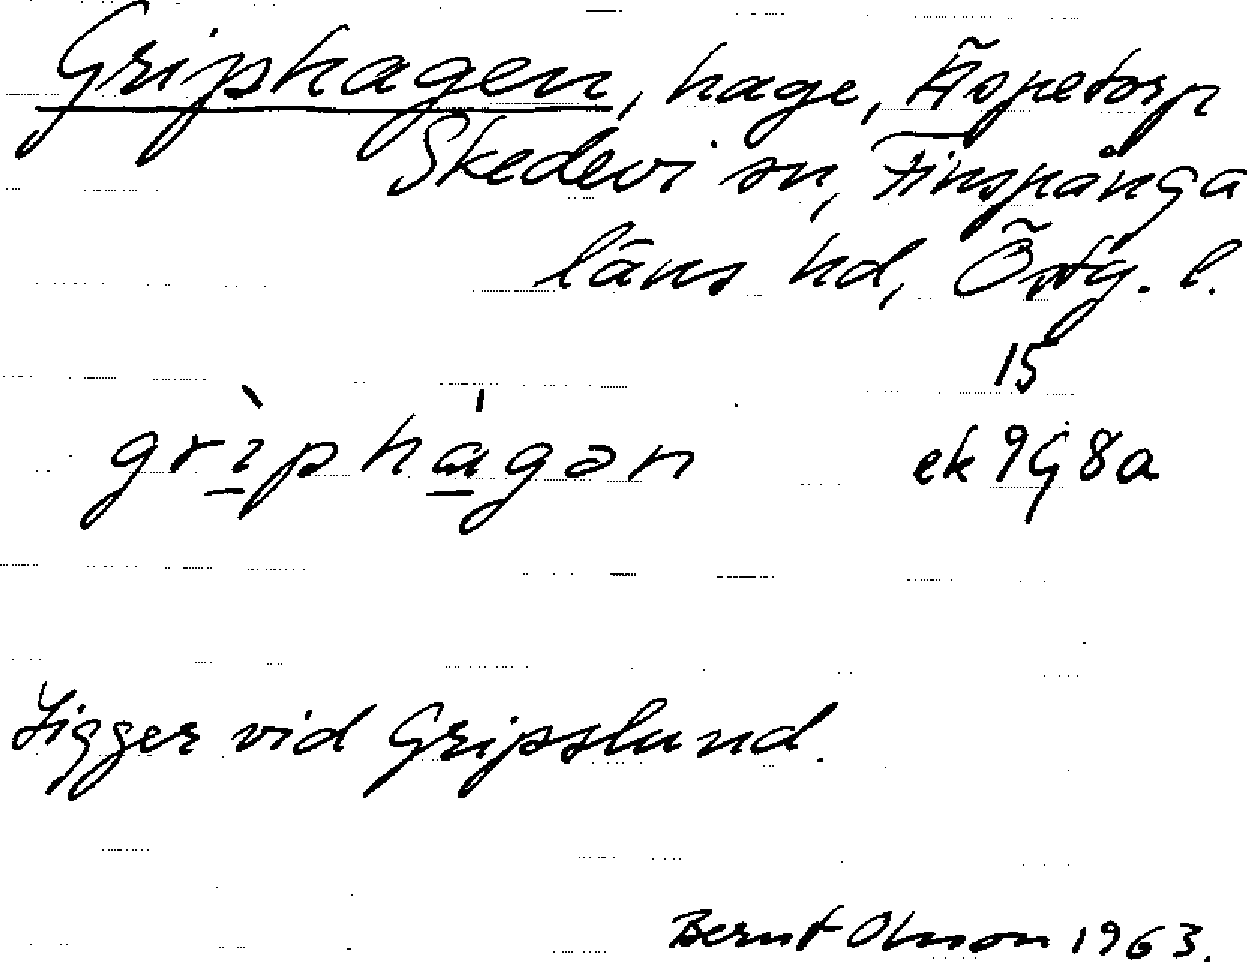 Griphagen, hage, Äspetorp
Skedevi sn, Finspånga
läns hd, Östg. l.
15
grìphágən ek 9G 8a
Ligger vid Gripslund.
Bernt Olsson 1963.